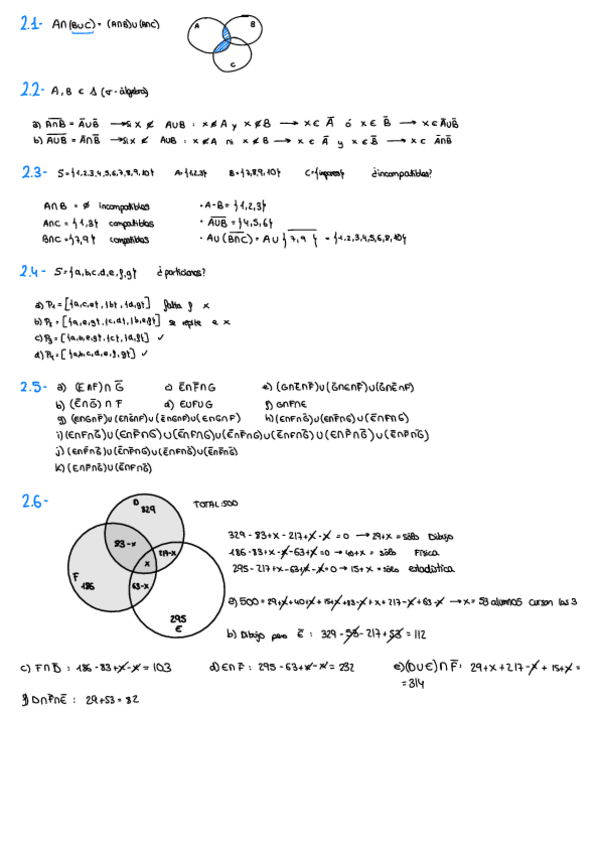 2.1- A∩(B∪C) = (A∩B)∪(A∩C)
A B C
2.2- A, B ∈ 𝒜 (σ-álgebra)
a) A̅∩̅B̅ = A̅∪B̅ → Si x ∉ A∪B : x ∉ A y x ∉ B → x ∈ A̅ ó x ∈ B̅ → x ∈ A̅∪B̅
b) A̅∪̅B̅ = A̅∩B̅ → Si x ∉ A∪B : x ∉ A ni x ∉ B → x ∈ A̅ y x ∈ B̅ → x ∈ A̅∩B̅
2.3- S={1,2,3,4,5,6,7,8,9,10} A={1,2,3} B={7,8,9,10} C={impares} ¿incompatibles?
A∩B = ∅ incompatibles · A-B = {1,2,3}
A∩C = {1,3} compatibles · A̅∪̅B̅ = {4,5,6}
B∩C = {7,9} compatibles · A∪(B̅∩̅C̅) = A∪{7,9} = {1,2,3,4,5,6,8,10}
2.4- S={a,b,c,d,e,f,g} ¿particiones?
a) P₁ = [{a,c,e}, {b}, {d,g}] falta f x
b) P₂ = [{a,e,g}, {c,d}, {b,e,f}] se repite e x
c) P₃ = [{a,b,e,g}, {c}, {d,f}] ✓
d) P₄ = [{a,b,c,d,e,f,g}] ✓
2.5- a) (E∩F)∩G̅ c) E̅∩F̅∩G̅ e) (G∩E̅∩F̅)∪(G̅∩E∩F̅)∪(G̅∩E̅∩F)
b) (E̅∩G̅)∩F d) E∪F∪G f) G∩F∩E
g) (E∩G∩F̅)∪(E∩G̅∩F)∪(E̅∩G∩F)∪(E∩G∩F) h) (E∩F∩G̅)∪(E∩F̅∩G)∪(E̅∩F∩G)
i) (E∩F∩G̅)∪(E∩F̅∩G)∪(E̅∩F∩G)∪(E̅∩F̅∩G)∪(E̅∩F∩G̅)∪(E∩F̅∩G̅)∪(E̅∩F̅∩G̅)
j) (E∩F̅∩G̅)∪(E̅∩F̅∩G)∪(E̅∩F∩G̅)∪(E̅∩F̅∩G̅)
k) (E∩F̅∩G̅)∪(E̅∩F∩G̅)
2.6-
D
329
TOTAL: 500
83-x
217-x
x
F
186
63-x
295
E
329-83+x-217+x-x=0 → 29+x = sólo Dibujo
186-83+x-63+x=0 → 40+x = sólo Física
295-217+x-63+x-x=0 → 15+x = sólo estadística
a) 500 = 29+x+40+x+15+x+83-x+x+217-x+63-x → x = 53 alumnos cursan las 3
b) Dibujo pero E̅ : 329-53-217+53 = 112
c) F∩D̅ : 186-83+x-x = 103 d) E∩F̅ : 295-63+x-x = 232 e) (D∪E)∩F̅ : 29+x+217-x+15+x =
= 314
f) D∩F̅∩E̅ : 29+53 = 82